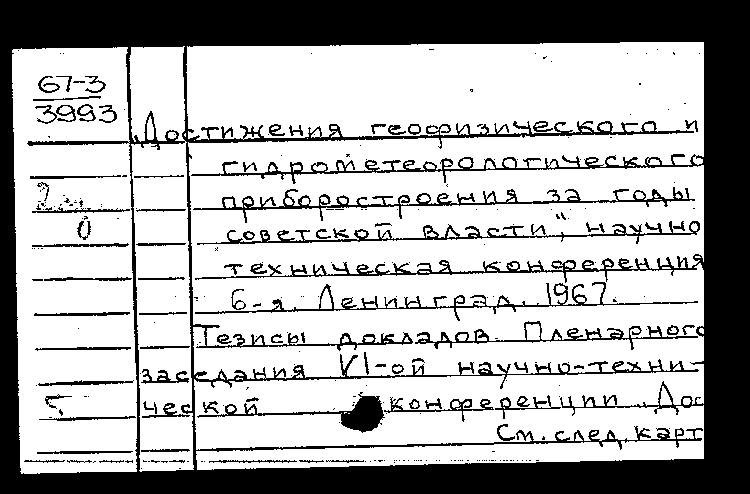 67-3
3993
„Достижения геофизического и
гидрометеорологического
приборостроения за годы
советской власти", научно
техническая конференция
6-я. Ленинград. 1967.
Тезисы докладов Пленарного
заседания VI-ой научно-техни-
ческой конференции „Дос
См. след. карт
0